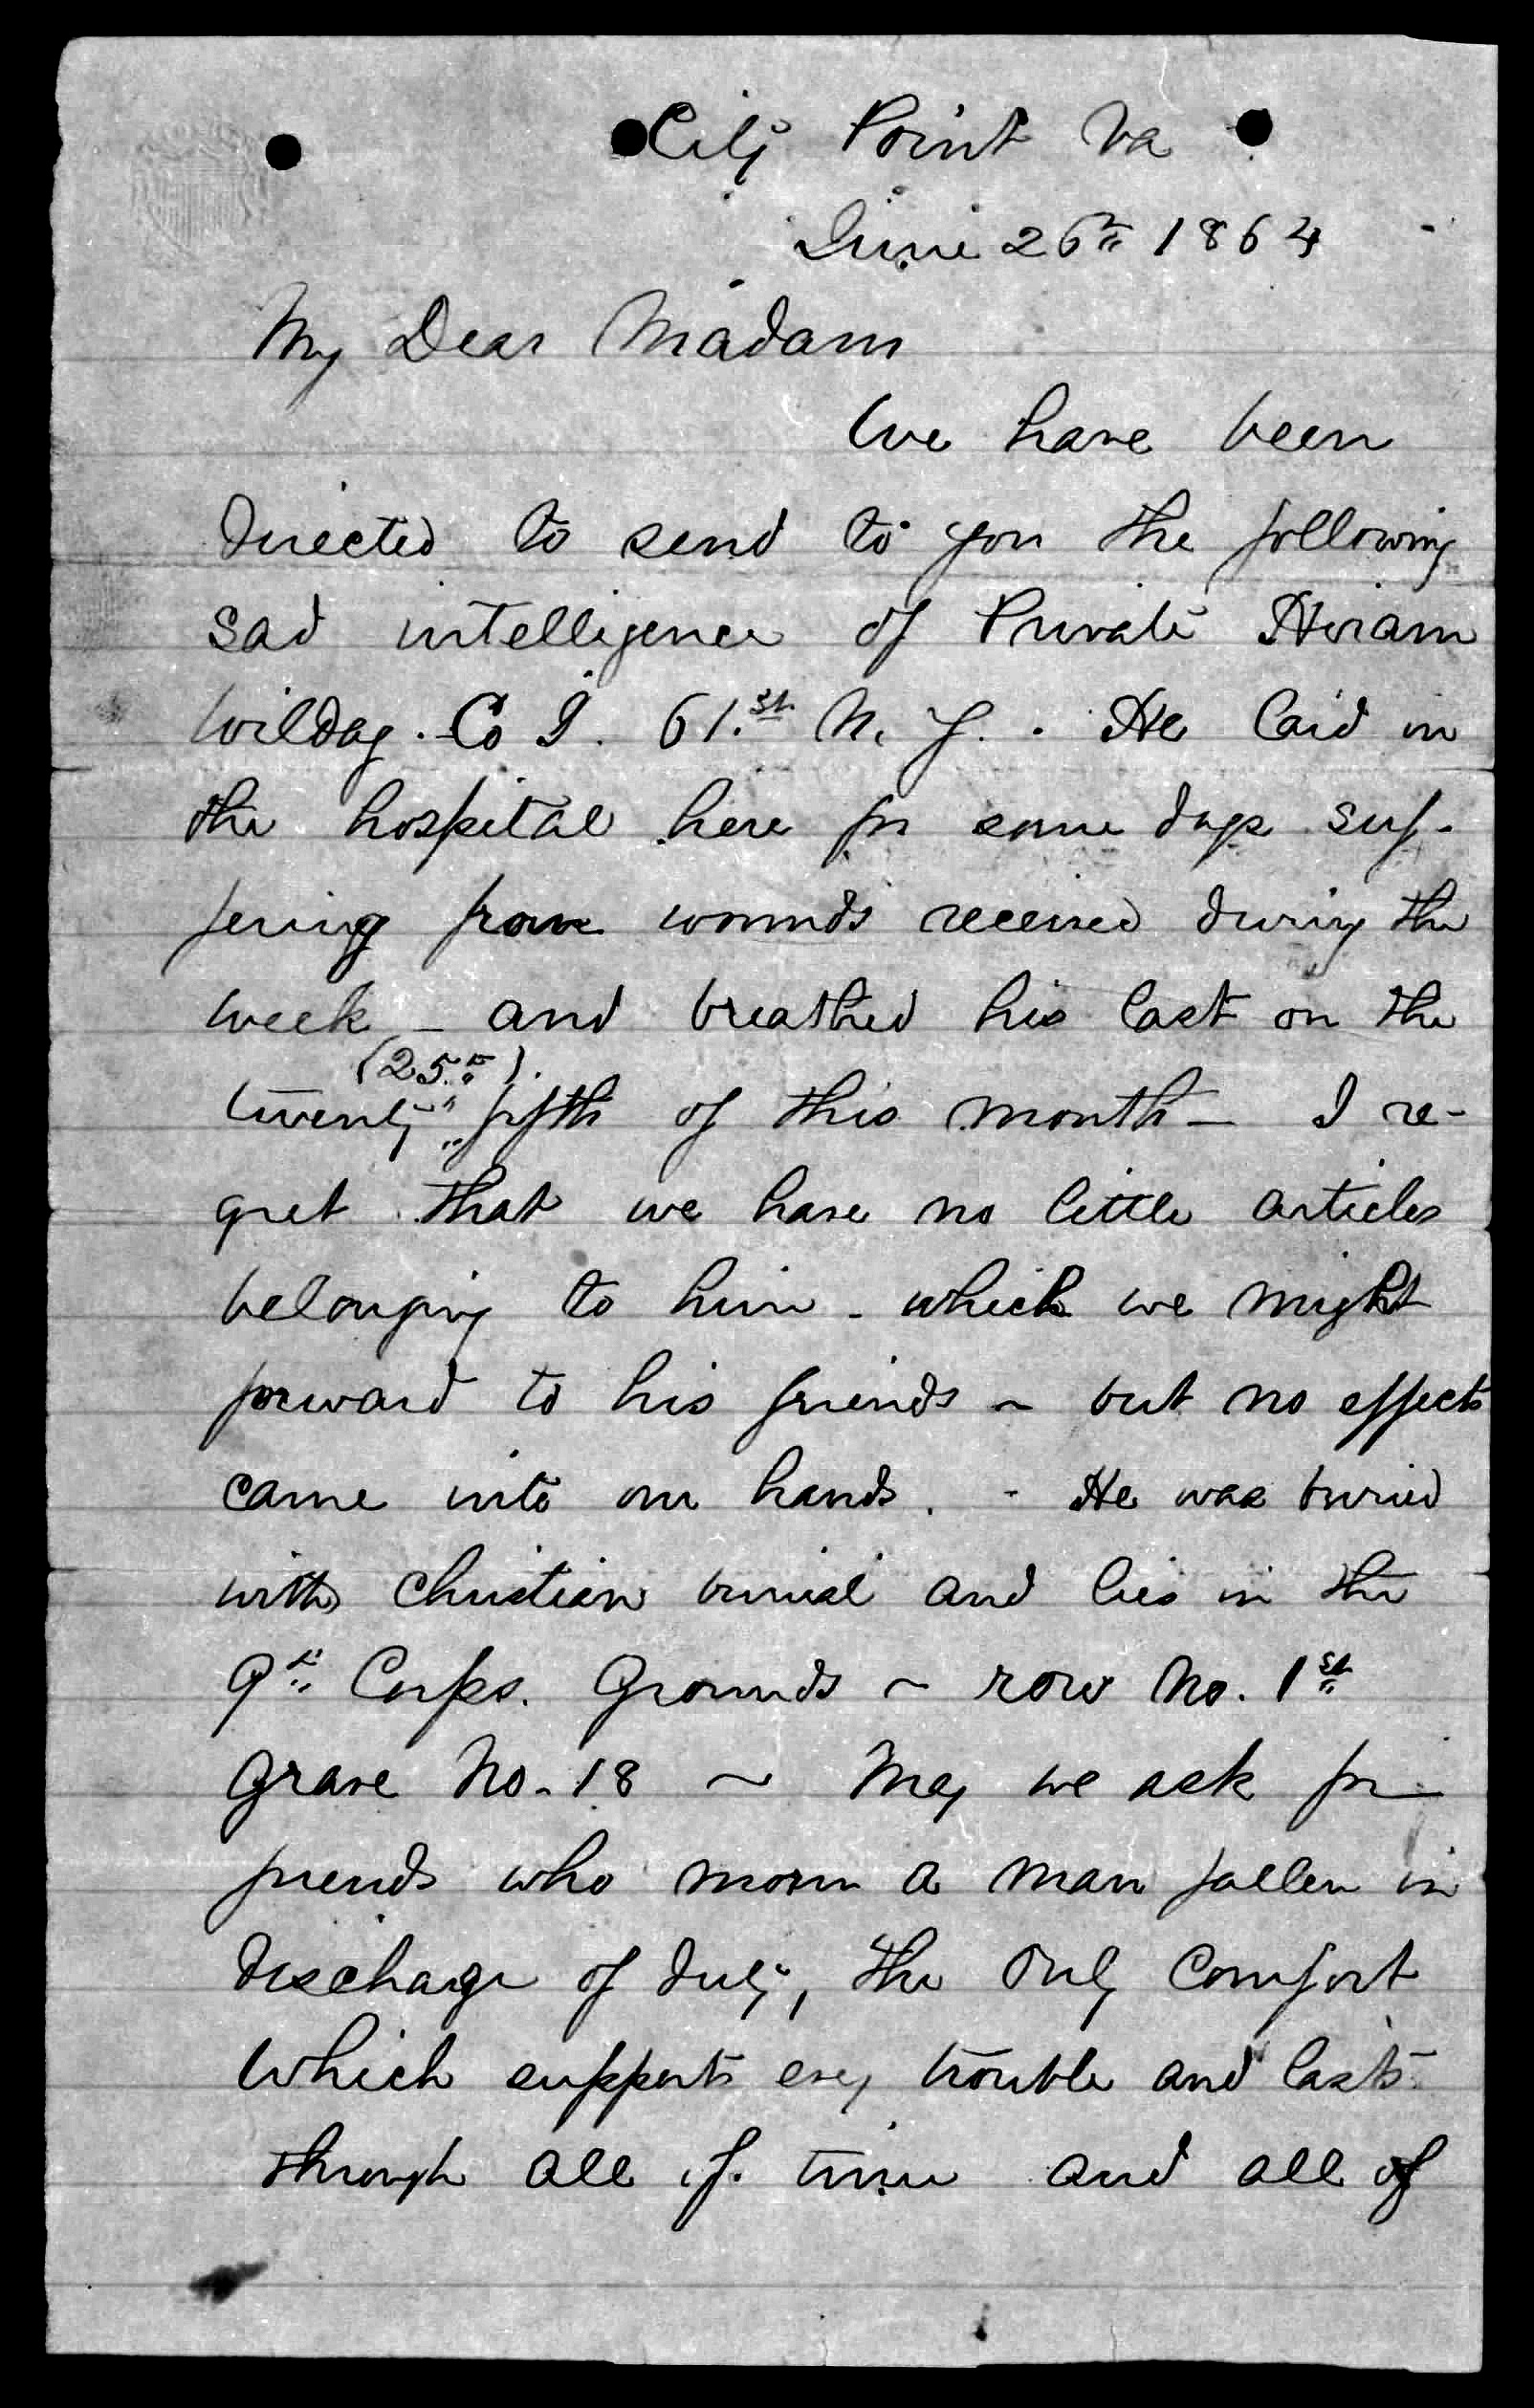 City Point Va
June 26th 1864
My Dear Madam
We have been
directed to send to you the following
sad intelligence of Private Hiram
Wilday. Co I. 61.st N. Y. . He laid in
the hospital here for some days suf-
fering from wounds received during the
week – and breathed his last on the
(25.th).
twenty fifth of this month – I re-
gret that we have no little articles
belonging to him – which we might
forward to his friends ~ but no effects
came into our hands. - He was buried
with Christian burial and lies in the
9th Corps. Grounds ~ row No. 1st
Grave No. 18 ~ May we ask for
friends who mourn a man fallen in
discharge of duty, the only comfort
which supports every trouble and lasts
through all of time and all of